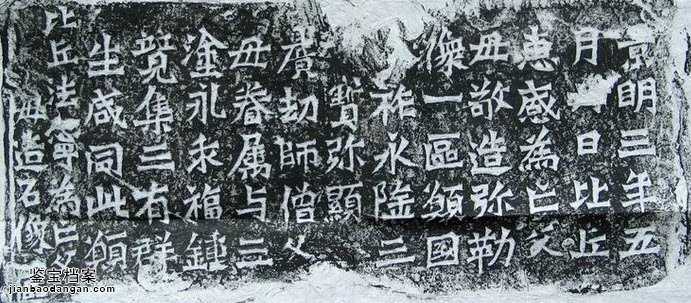 景明三年五
月日比丘
惠感為亡父
母敬造弥勒
像一區願國
祚永隆三
寶弥顯
曠劫師僧父
母眷属与三
塗永乖福鍾
競集三有群
生咸同此願
比丘法寧為亡父
母造石像
鉴宝档案
jianbaodangan.com